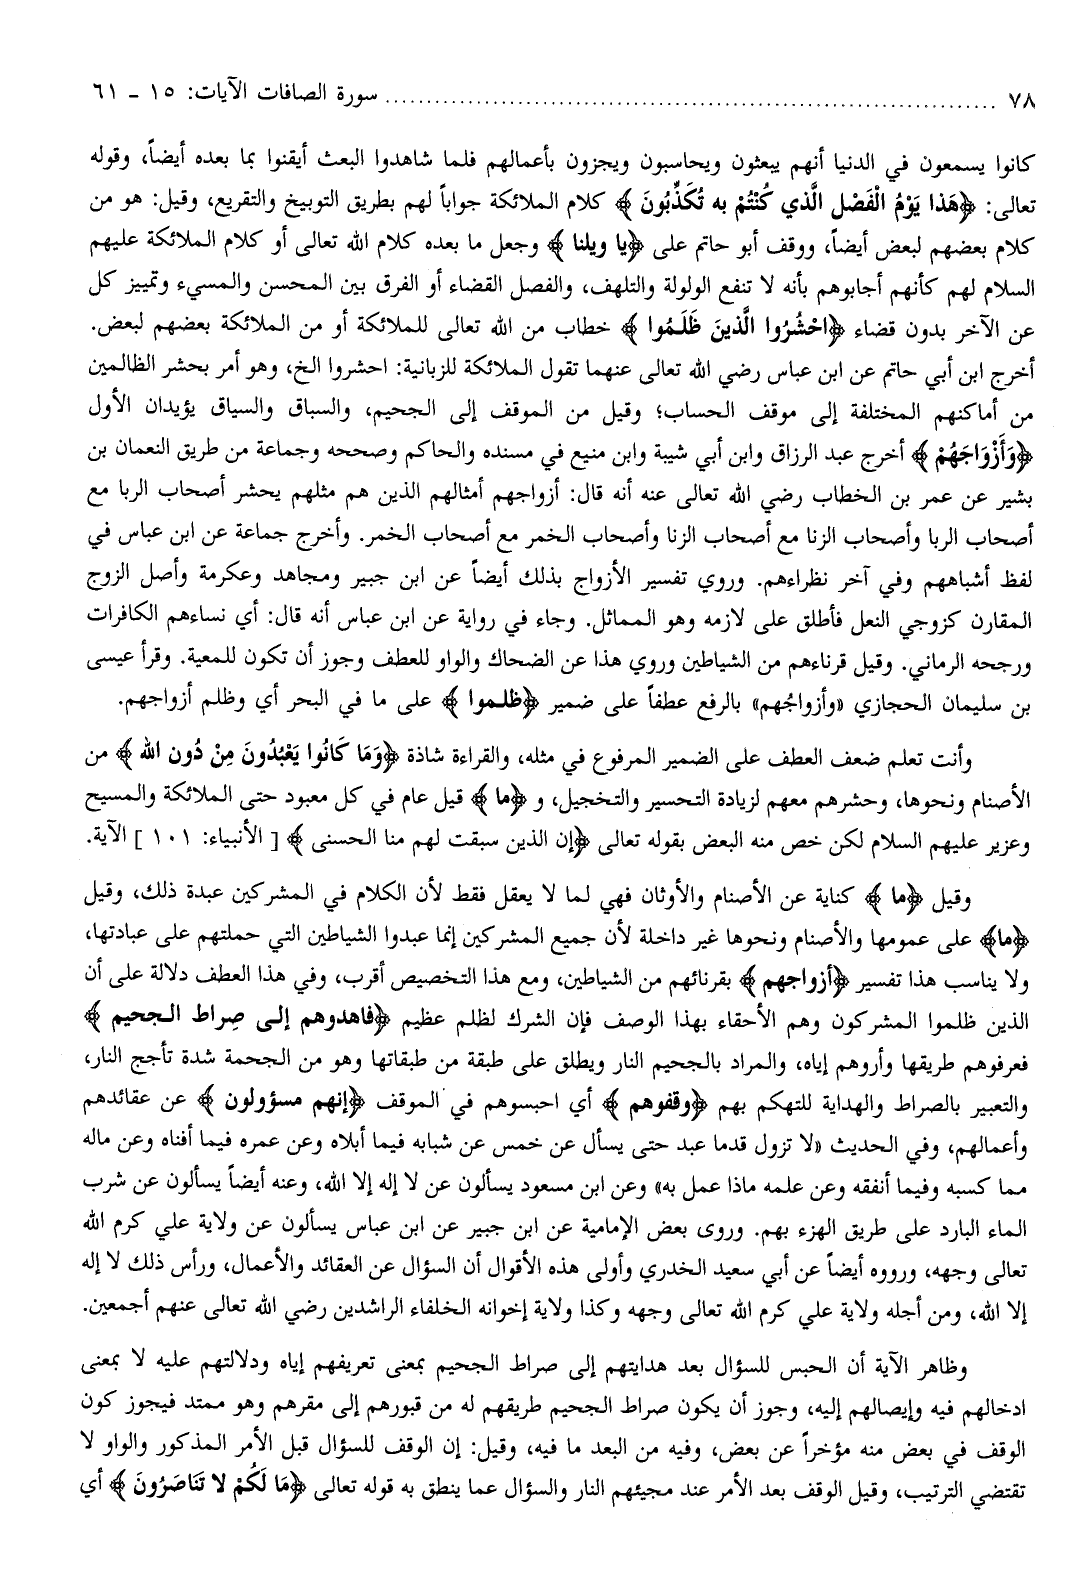 ٧٨ ........................ سورة الصافات الآيات: ١٥ - ٦١
كانوا يسمعون في الدنيا أنهم يبعثون ويحاسبون ويجزون بأعمالهم فلما شاهدوا البعث أيقنوا بما بعده أيضاً، وقوله
تعالى: ﴿هَذا يَوْمُ الْفَصْل الَّذي كُنْتُمْ به تُكَذِّبُونَ ﴾ كلام الملائكة جواباً لهم بطريق التوبيخ والتقريع، وقيل: هو من
كلام بعضهم لبعض أيضاً، ووقف أبو حاتم على ﴿يا ويلنا ﴾ وجعل ما بعده كلام الله تعالى أو كلام الملائكة عليهم
السلام لهم كأنهم أجابوهم بأنه لا تنفع الولولة والتلهف، والفصل القضاء أو الفرق بين المحسن والمسيء وتمييز كل
عن الآخر بدون قضاء ﴿احْشُرُوا الَّذينَ ظَلَمُوا ﴾ خطاب من الله تعالى للملائكة أو من الملائكة بعضهم لبعض.
أخرج ابن أبي حاتم عن ابن عباس رضي الله تعالى عنهما تقول الملائكة للزبانية: احشروا الخ، وهو أمر بحشر الظالمين
من أماكنهم المختلفة إلى موقف الحساب؛ وقيل من الموقف إلى الجحيم، والسباق والسياق يؤيدان الأول
﴿وَأَزْوَاجَهُمْ ﴾ أخرج عبد الرزاق وابن أبي شيبة وابن منيع في مسنده والحاكم وصححه وجماعة من طريق النعمان بن
بشير عن عمر بن الخطاب رضي الله تعالى عنه أنه قال: أزواجهم أمثالهم الذين هم مثلهم يحشر أصحاب الربا مع
أصحاب الربا وأصحاب الزنا مع أصحاب الزنا وأصحاب الخمر مع أصحاب الخمر. وأخرج جماعة عن ابن عباس في
لفظ أشباههم وفي آخر نظراءهم. وروي تفسير الأزواج بذلك أيضاً عن ابن جبير ومجاهد وعكرمة وأصل الزوج
المقارن كزوجي النعل فأطلق على لازمه وهو المماثل. وجاء في رواية عن ابن عباس أنه قال: أي نساءهم الكافرات
ورجحه الرماني. وقيل قرناءهم من الشياطين وروي هذا عن الضحاك والواو للعطف وجوز أن تكون للمعية. وقرأ عيسى
بن سليمان الحجازي «وأزواجُهم» بالرفع عطفاً على ضمير ﴿ظلموا ﴾ على ما في البحر أي وظلم أزواجهم.
وأنت تعلم ضعف العطف على الضمير المرفوع في مثله، والقراءة شاذة ﴿وَمَا كَانُوا يَعْبُدُونَ مِنْ دُون الله ﴾ من
الأصنام ونحوها، وحشرهم معهم لزيادة التحسير والتخجيل، و ﴿ما ﴾ قيل عام في كل معبود حتى الملائكة والمسيح
وعزير عليهم السلام لكن خص منه البعض بقوله تعالى ﴿إن الذين سبقت لهم منا الحسنى ﴾ [ الأنبياء: ١٠١ ] الآية.
وقيل ﴿ما ﴾ كناية عن الأصنام والأوثان فهي لما لا يعقل فقط لأن الكلام في المشركين عبدة ذلك، وقيل
﴿ما﴾ على عمومها والأصنام ونحوها غير داخلة لأن جميع المشركين إنما عبدوا الشياطين التي حملتهم على عبادتها،
ولا يناسب هذا تفسير ﴿أزواجهم ﴾ بقرنائهم من الشياطين، ومع هذا التخصيص أقرب، وفي هذا العطف دلالة على أن
الذين ظلموا المشركون وهم الأحقاء بهذا الوصف فإن الشرك لظلم عظيم ﴿فاهدوهم إلى صِراط الجحيم ﴾
فعرفوهم طريقها وأروهم إياه، والمراد بالجحيم النار ويطلق على طبقة من طبقاتها وهو من الجحمة شدة تأجج النار،
والتعبير بالصراط والهداية للتهكم بهم ﴿وقفوهم ﴾ أي احبسوهم في الموقف ﴿إنهم مسؤولون ﴾ عن عقائدهم
وأعمالهم، وفي الحديث «لا تزول قدما عبد حتى يسأل عن خمس عن شبابه فيما أبلاه وعن عمره فيما أفناه وعن ماله
مما كسبه وفيما أنفقه وعن علمه ماذا عمل به» وعن ابن مسعود يسألون عن لا إله إلا الله، وعنه أيضاً يسألون عن شرب
الماء البارد على طريق الهزء بهم. وروى بعض الإمامية عن ابن جبير عن ابن عباس يسألون عن ولاية علي كرم الله
تعالى وجهه، ورووه أيضاً عن أبي سعيد الخدري وأولى هذه الأقوال أن السؤال عن العقائد والأعمال، ورأس ذلك لا إله
إلا الله، ومن أجله ولاية علي كرم الله تعالى وجهه وكذا ولاية إخوانه الخلفاء الراشدين رضي الله تعالى عنهم أجمعين.
وظاهر الآية أن الحبس للسؤال بعد هدايتهم إلى صراط الجحيم بمعنى تعريفهم إياه ودلالتهم عليه لا بمعنى
ادخالهم فيه وإيصالهم إليه، وجوز أن يكون صراط الجحيم طريقهم له من قبورهم إلى مقرهم وهو ممتد فيجوز كون
الوقف في بعض منه مؤخراً عن بعض، وفيه من البعد ما فيه، وقيل: إن الوقف للسؤال قبل الأمر المذكور والواو لا
تقتضي الترتيب، وقيل الوقف بعد الأمر عند مجيئهم النار والسؤال عما ينطق به قوله تعالى ﴿مَا لَكُمْ لا تَنَاصَرُونَ ﴾ أي